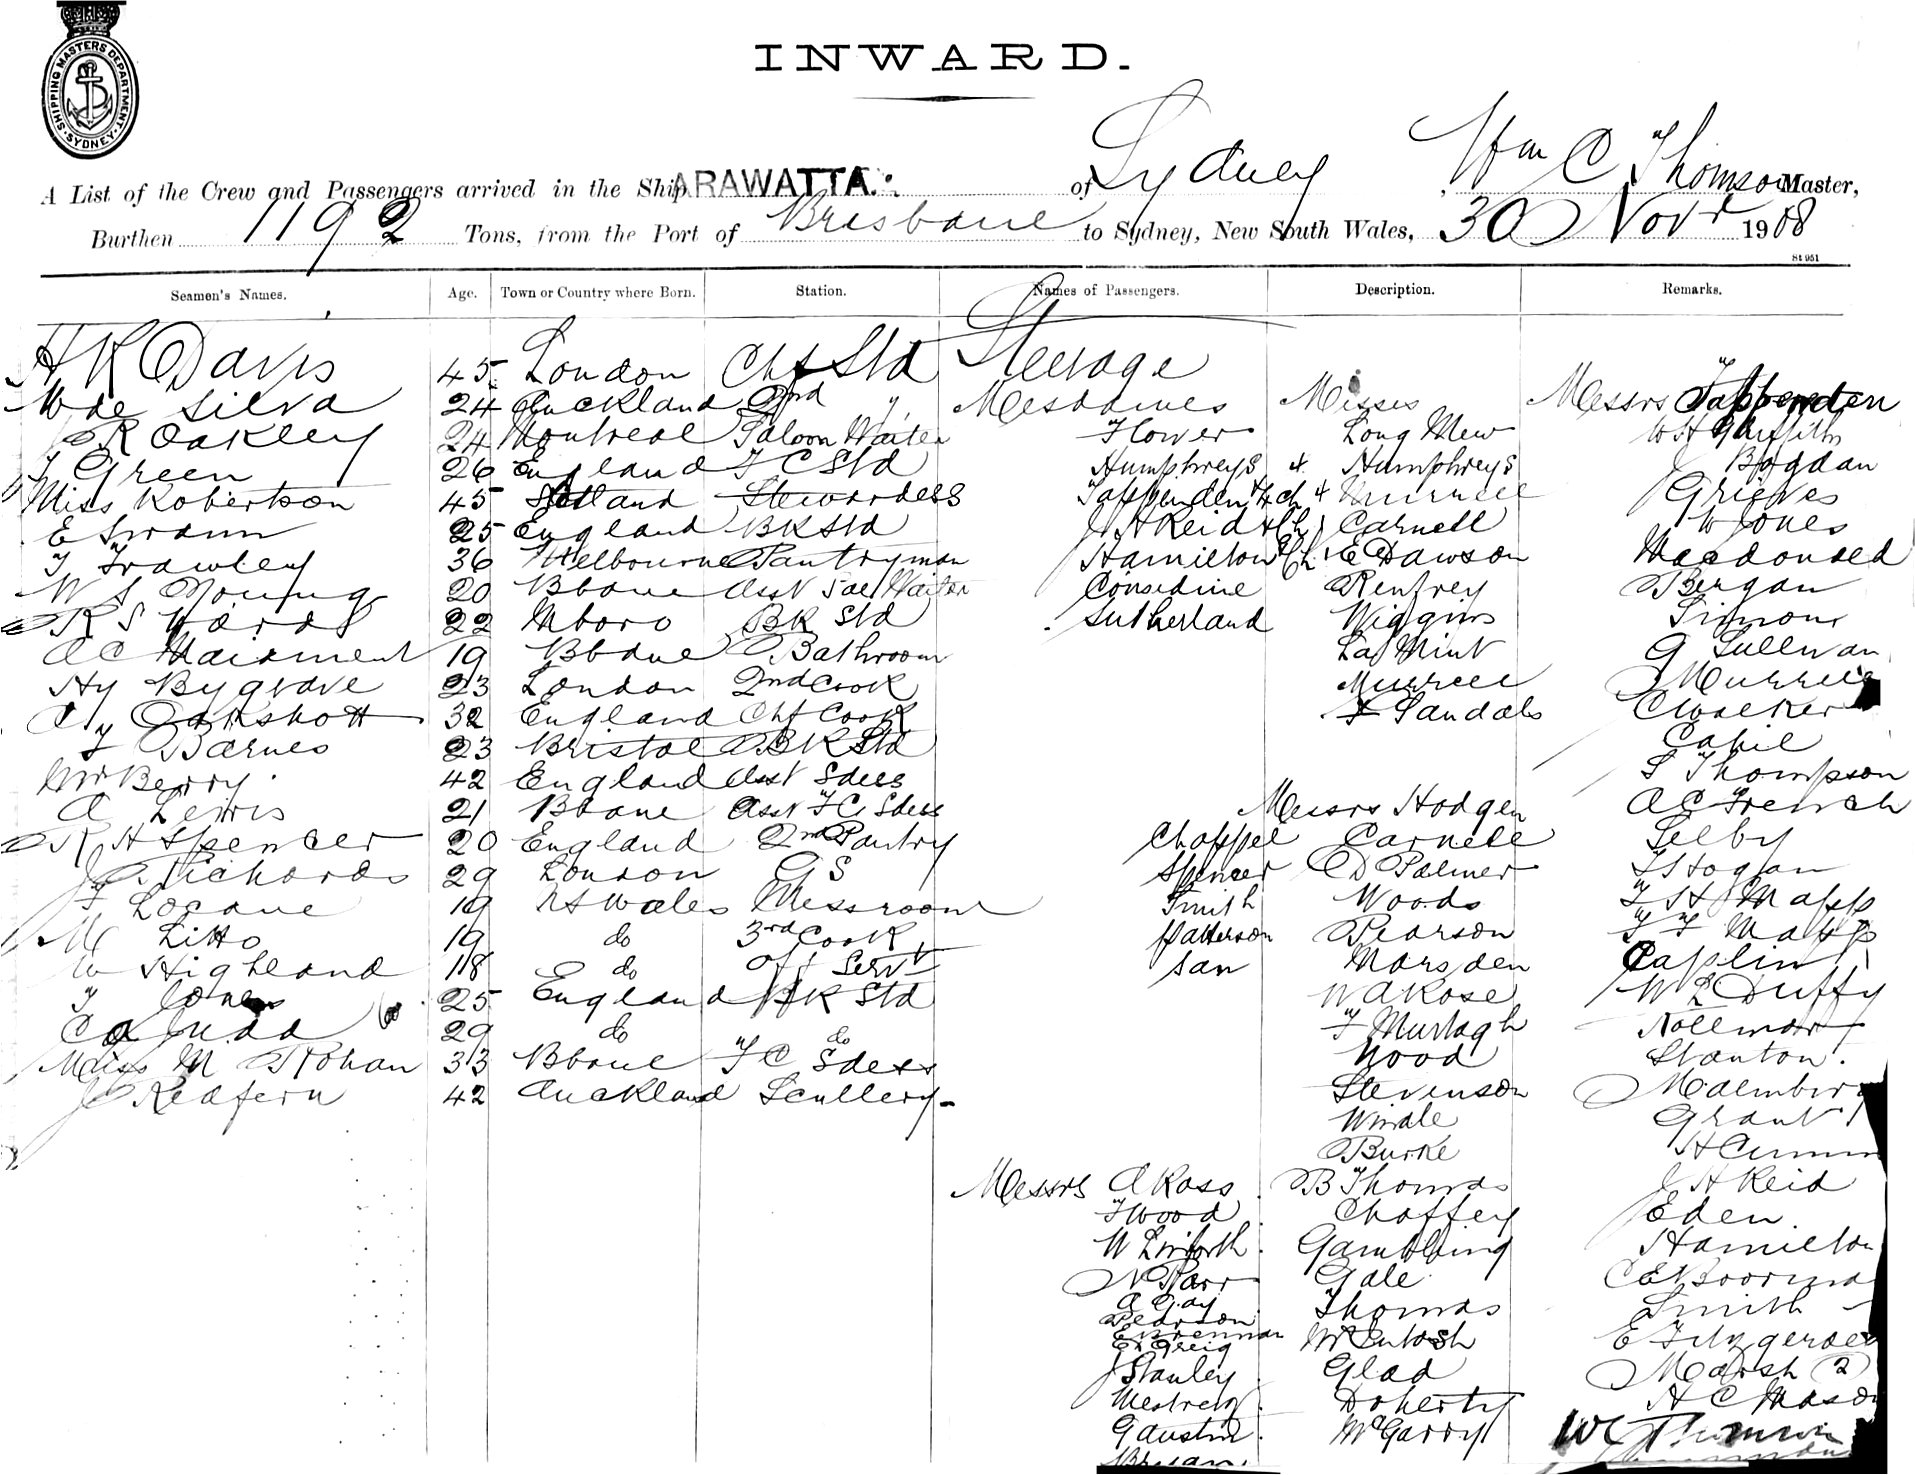 SHIPPING MASTERS DEPARTMENT. SYDNEY
INWARD.
A List of the Crew and Passengers arrived in the Ship ARAWATTA. of Sydney, Wm C Thomson Master,
Burthen 1192 Tons, from the Port of Brisbane to Sydney, New South Wales, 30 Novr 1908
St 951
Seamen's Names. Age. Town or Country where Born. Station. Names of Passengers. Description. Remarks.
H K Davis 45 London Chf Std
W de Silva 24 Auckland 2nd "
R Oakley 24 Montreal Saloon Waiter
T Green 26 England F C Std
Miss Robertson 45 Stewardess
E Swann 25 England BK Std
T Frawley 36 Melbourne Pantryman
W S Young 20 Bbane Asst Sal Waiter
R S Wards 22 Mboro BK Std
A C Maidment 19 Bbane Bathroom
Hy Bygrave 23 London 2nd Cook
Oakshott 32 England Chf Cook
F Barnes 23 Bristol BK Std
Mrs Berry 42 England Asst Sdess
A Lewis 21 Bbane Asst F C Sdess
R H Spencer 20 England 2nd Pantry
J Richards 29 London G S
F Locane 19 N S Wales Messroom
M Litto 19 do 3rd Cook
W Highland 18 do Off Servt
T Jones 25 England BK Std
C A Judd 29 do do
Miss M Strohan 33 Bbane F C Sdess
J Redfern 42 Auckland Scullery
Steerage
Mesdames
Flower
Humphreys &
Tappenden & 4 ch &
J H Reid & Ch
Hamilton & Ch
Considine
Sutherland
Chappel
Spencer
Smith
Patterson
San
Messrs A Ross
F Wood
W Linforth
N Parr
A Gay
Pearson
E Brennan
E Greig
J Stanley
G Austin
Bryan.
Misses
Long Mew
Humphreys
Murrell
Carnell
E Dawson
Renfrey
Wiggins
La Mint
Murrell
F Sandals
Messrs Hodgen
Carnell
C D Palmer
Woods
Pearson
Marsden
W A Rose
F Murtagh
Wood
Stevenson
Windle
Burke
B Thomas
Chaffey
Gambling
Gale
Thomas
McIntosh
Glad
Doherty
McGarry
Messrs Tappenden
W H Griffith
J Bogdan
Grieves
W Jones
Macdonald
Bergan
Simons
G Sullivan
J Murrell
C Walker
Cahil
S Thompson
A C French
Selby
T Hogan
T H Mapp
T F Mapp
Caplin
W L Duffy
Stanton.
Malmberg
Grant
J H Reid
Eden.
Hamilton
C E Boorma
Smith
E Fitzgerald
Marsh (2)
H C Mason
W C Thomson